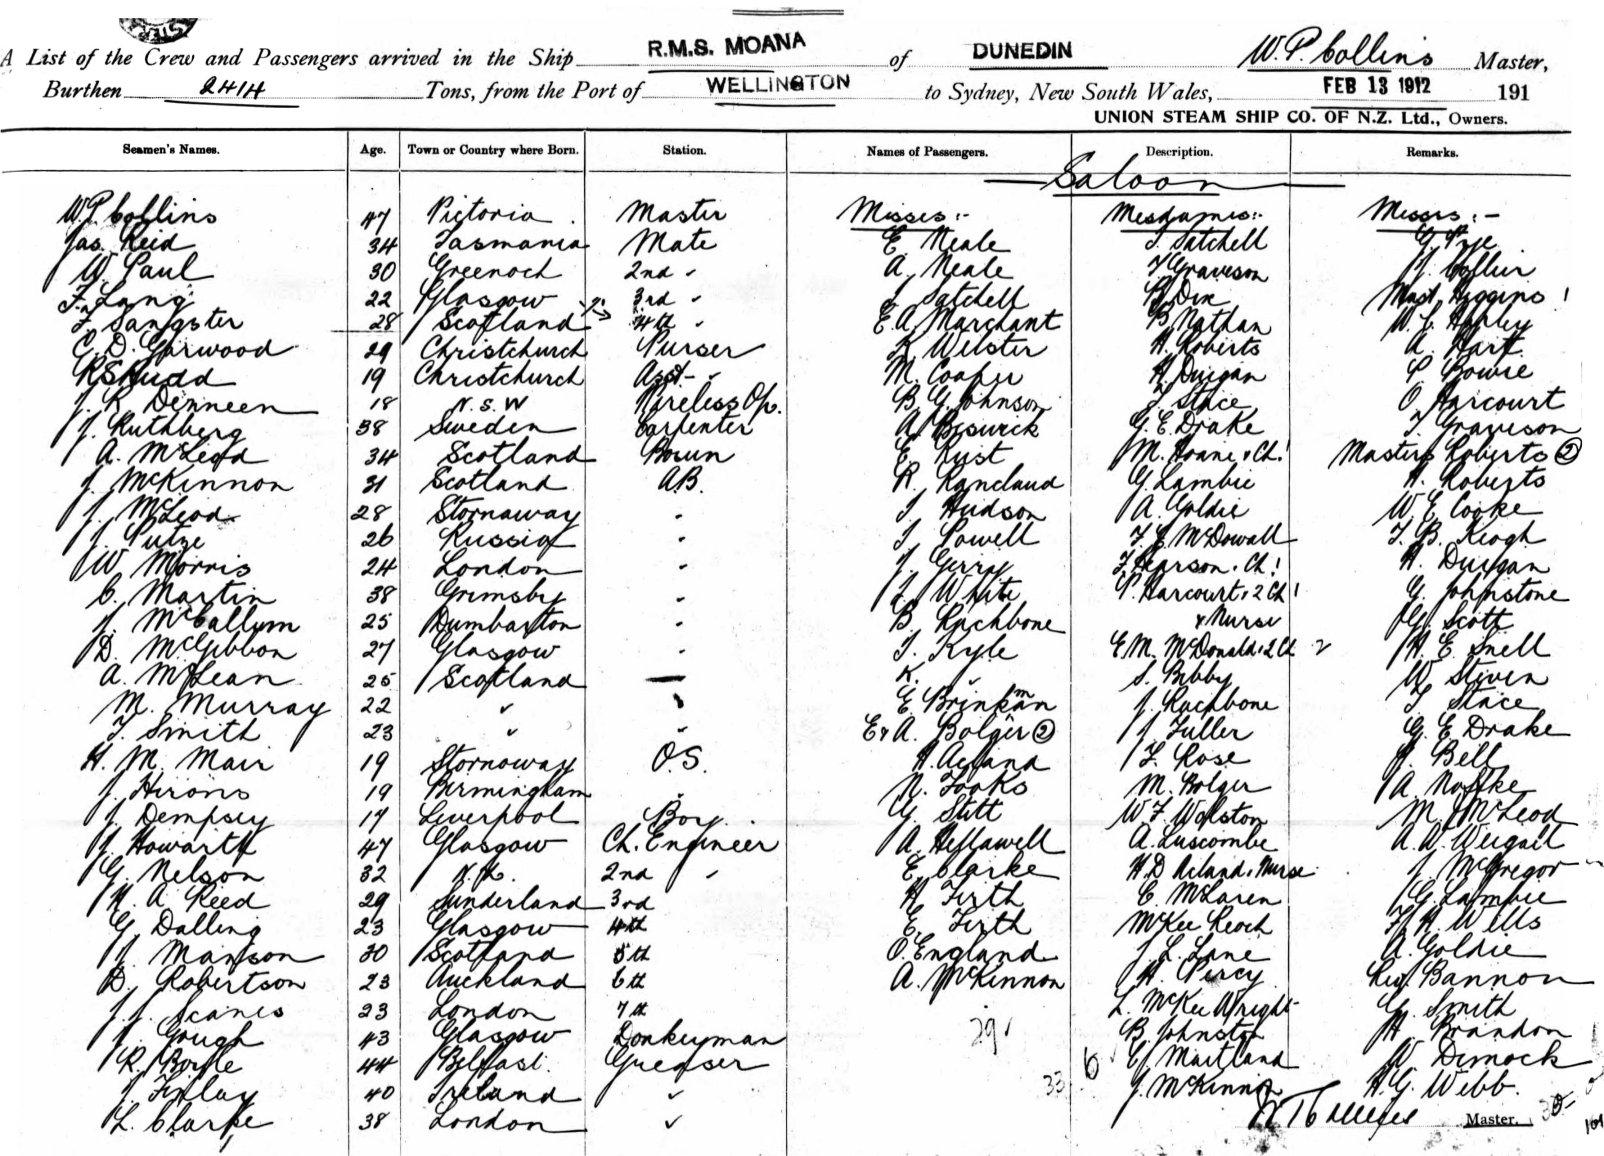 A List of the Crew and Passengers arrived in the Ship R.M.S. MOANA of DUNEDIN W. P. Collins Master,
Burthen 2414 Tons, from the Port of WELLINGTON to Sydney, New South Wales, FEB 13 1912 191
UNION STEAM SHIP CO. OF N.Z. Ltd., Owners.
Seamen's Names. Age. Town or Country where Born. Station. Names of Passengers. Description. Remarks.
Saloon
W.P. Collins 47 Victoria Master Misses :- Mesdames :- Messrs :-
Jas. Reid 34 Tasmania Mate E. Neale J. Satchell G. Pye
W. Paul 30 Greenock 2nd " A. Neale T. Graveson J. Collier
F. Lang 22 Glasgow 3rd " J. Satchell B. Dix Mast. Higgins 1
F. Sangster 28 Scotland 4th " E. A. Marchant B. Nathan
C. D. Garwood 29 Christchurch Purser K. Webster H. Roberts A. Hart
R S Rudd 19 Christchurch Asst- " M. Cooper H. Durgan Bowie
J. R. Denneen 18 N. S. W Wireless Op. B. G. Johnson J. Stace O. Harcourt
J. Ruthberg 38 Sweden Carpenter A. Beswick G. E. Drake T. Graveson
A. McLeod 34 Scotland Bosun E. Rust M. Hoane & Ch. 1 Masters Roberts 2
J. McKinnon 31 Scotland A.B. R. Rancland G. Lambie H. Roberts
J. McLeod 28 Stornaway " J. Hudson A. Goldie W. E. Cooke
J. Putze 26 Russia " J. Powell F. E. McDowall T. B. Keogh
W. Morris 24 London " J. Gerray J. Pearson & Ch. 1 H. Durgan
C. Martin 38 Grimsby " J. White P. Harcourt & 2 Ch 1 G. Johnstone
J. McCallum 25 Dumbarton " B. Rachbone & Nurse G. Scott
D. McGibbon 27 Glasgow " J. Kyle E. M. McDonald & 2 Ch 2 H. E. Snell
A. McLean 25 Scotland — K. " S. Bibby W. Steven
M. Murray 22 " " E. Brinkman J. Rachbone J. Stace
J. Smith 23 " " E & A. Bolger 2 J. Fuller G. E. Drake
H. M. Mair 19 Stornoway O.S. H. Acland L. Rose J. Bell
J. Hirons 19 Birmingham " N. Fooks M. Bolger A. Noffke
J. Dempsey 17 Liverpool Boy G. Stitt W. F. Walston M. J. McLeod
J. Howarth 47 Glasgow Ch. Engineer A. Hellawell A. Luscombe A. A. Weigall
G. Nelson 32 N.Z. 2nd " E. Clarke H. D Acland & Nurse J. McGregor
H. A. Reed 29 Sunderland 3rd H. Firth E. McLaren G. Lambie
G. Dalling 23 Glasgow 4th E. Firth McKee Keoch F. H. Wells
J. Manson 30 Scotland 5th O. England J. L. Lane A. Goldie
D. Robertson 23 Auckland 6th A. McKinnon H. Percy Rev. Bannon
J. J. Scanes 23 London 7th L. McKee Wright G. Smith
J. Gough 43 Glasgow Donkeyman 29 B. Johnston H. Brandon
R. Boyle 44 Belfast. Greaser 6 E. Maitland W. Dimock
J. Finlay 40 Ireland " 33 J. McKinnon H. G. Webb.
L. Clarke 38 London " W P Collins Master.